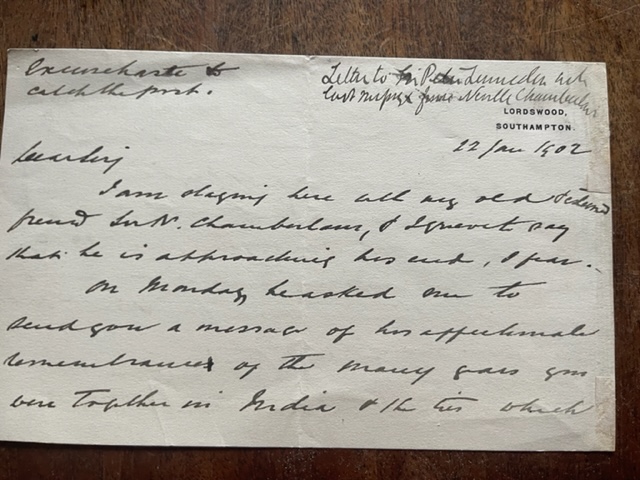 Excuse haste to
catch the post.
Letter to Sir Peter Lumsden with
last message from Neville Chamberlain
LORDSWOOD,
SOUTHAMPTON.
22 Jan 1902
Dear Sir,
I am staying here with my old &
friend Sir N. Chamberlain, & I grieve to say
that he is approaching his end, I fear.
On Monday he asked me to
send you a message of his affectionate
remembrances of the many years you
were together in India & the ties which